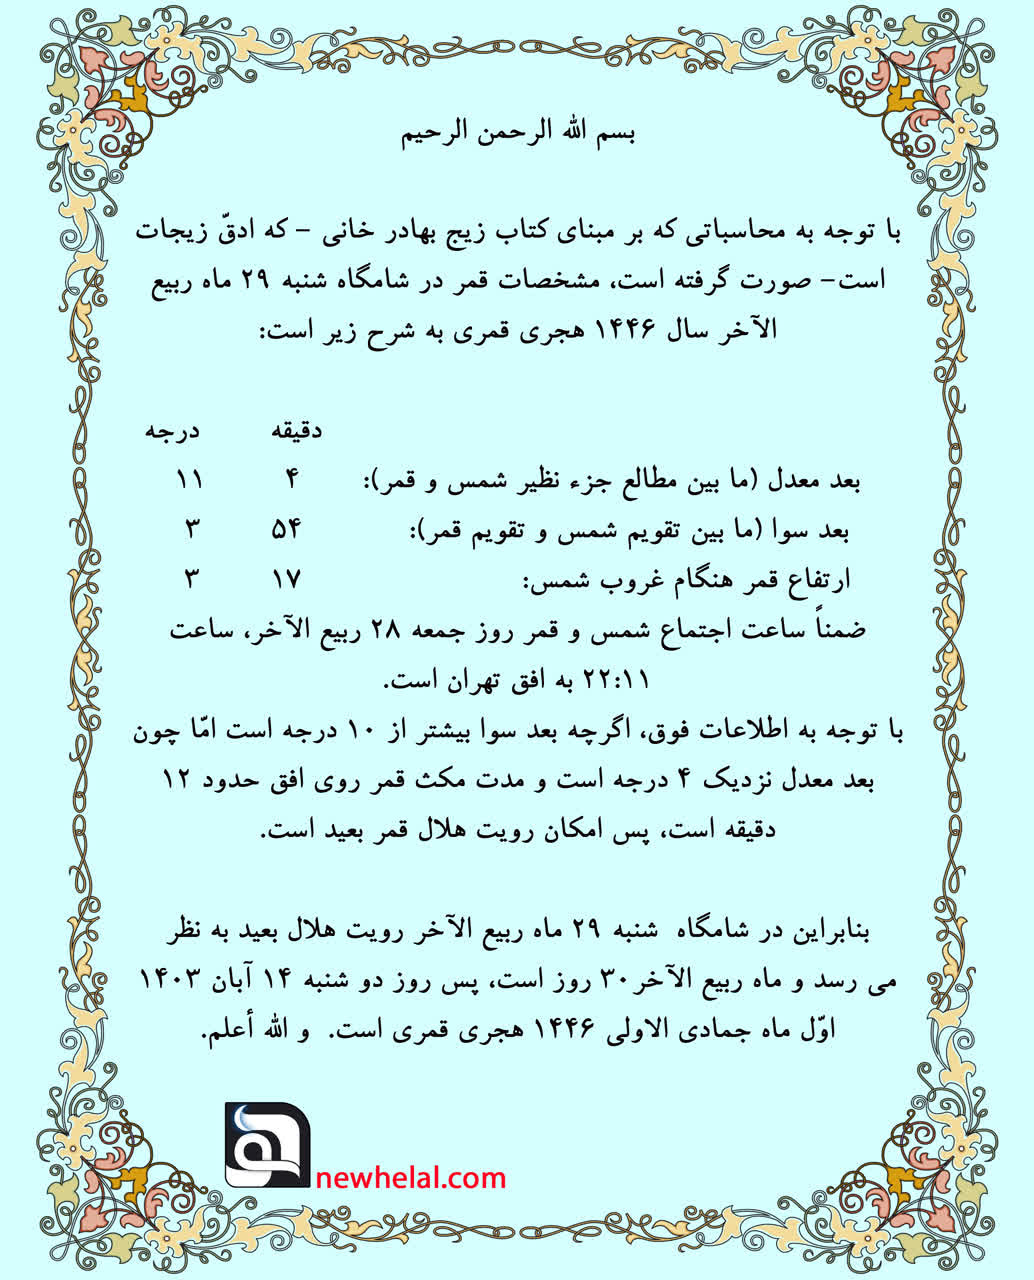 بسم الله الرحمن الرحیم
با توجه به محاسباتی که بر مبنای کتاب زیج بهادر خانی – که ادقّ زیجات
است– صورت گرفته است، مشخصات قمر در شامگاه شنبه ۲۹ ماه ربیع
الآخر سال ۱۴۴۶ هجری قمری به شرح زیر است:
دقیقه درجه
بعد معدل (ما بین مطالع جزء نظیر شمس و قمر): ۴ ۱۱
بعد سوا (ما بین تقویم شمس و تقویم قمر): ۵۴ ۳
ارتفاع قمر هنگام غروب شمس: ۱۷ ۳
ضمناً ساعت اجتماع شمس و قمر روز جمعه ۲۸ ربیع الآخر، ساعت
۲۲:۱۱ به افق تهران است.
با توجه به اطلاعات فوق، اگرچه بعد سوا بیشتر از ۱۰ درجه است امّا چون
بعد معدل نزدیک ۴ درجه است و مدت مکث قمر روی افق حدود ۱۲
دقیقه است، پس امکان رویت هلال قمر بعید است.
بنابراین در شامگاه شنبه ۲۹ ماه ربیع الآخر رویت هلال بعید به نظر
می رسد و ماه ربیع الآخر۳۰ روز است، پس روز دو شنبه ۱۴ آبان ۱۴۰۳
اوّل ماه جمادی الاولی ۱۴۴۶ هجری قمری است. و الله أعلم.
newhelal.com